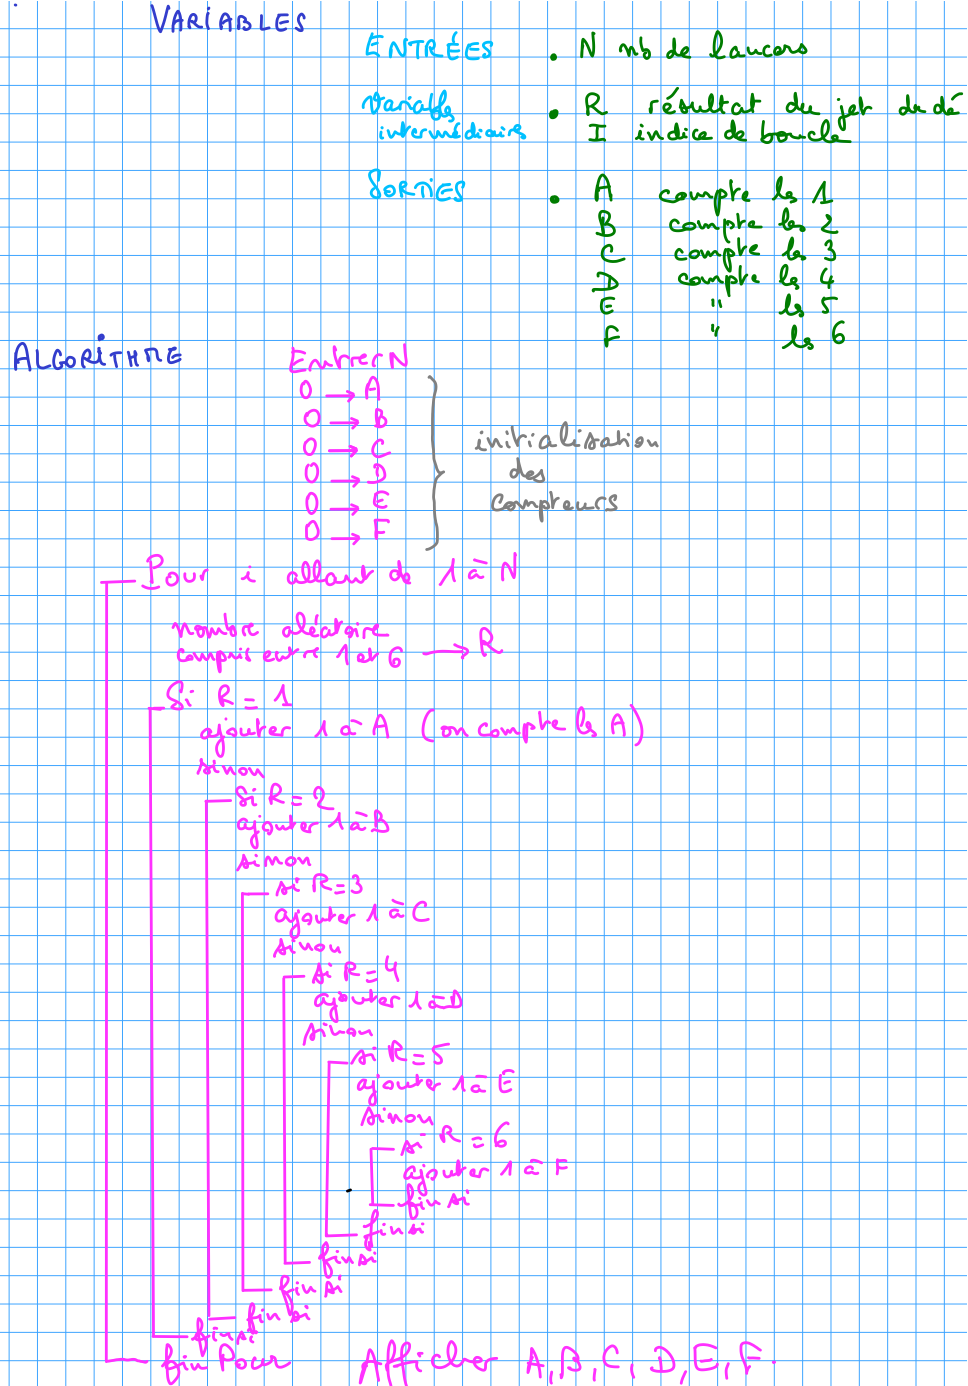 VARIABLES
ENTRÉES • N nb de lancers
Variables • R résultat du jet du dé
intermédiaires I indice de boucle
SORTIES • A compte les 1
B compte les 2
C compte les 3
D compte les 4
E " les 5
F " les 6
ALGORITHME
Entrer N
0 → A
0 → B
0 → C
0 → D
0 → E
0 → F
initialisation
des
compteurs
Pour i allant de 1 à N
nombre aléatoire
compris entre 1 et 6 → R
Si R = 1
ajouter 1 à A (on compte les A)
sinon
Si R = 2
ajouter 1 à B
sinon
si R = 3
ajouter 1 à C
sinon
si R = 4
ajouter 1 à D
sinon
si R = 5
ajouter 1 à E
sinon
si R = 6
ajouter 1 à F
fin si
fin si
fin si
fin si
fin si
fin si
fin Pour Afficher A, B, C, D, E, F.